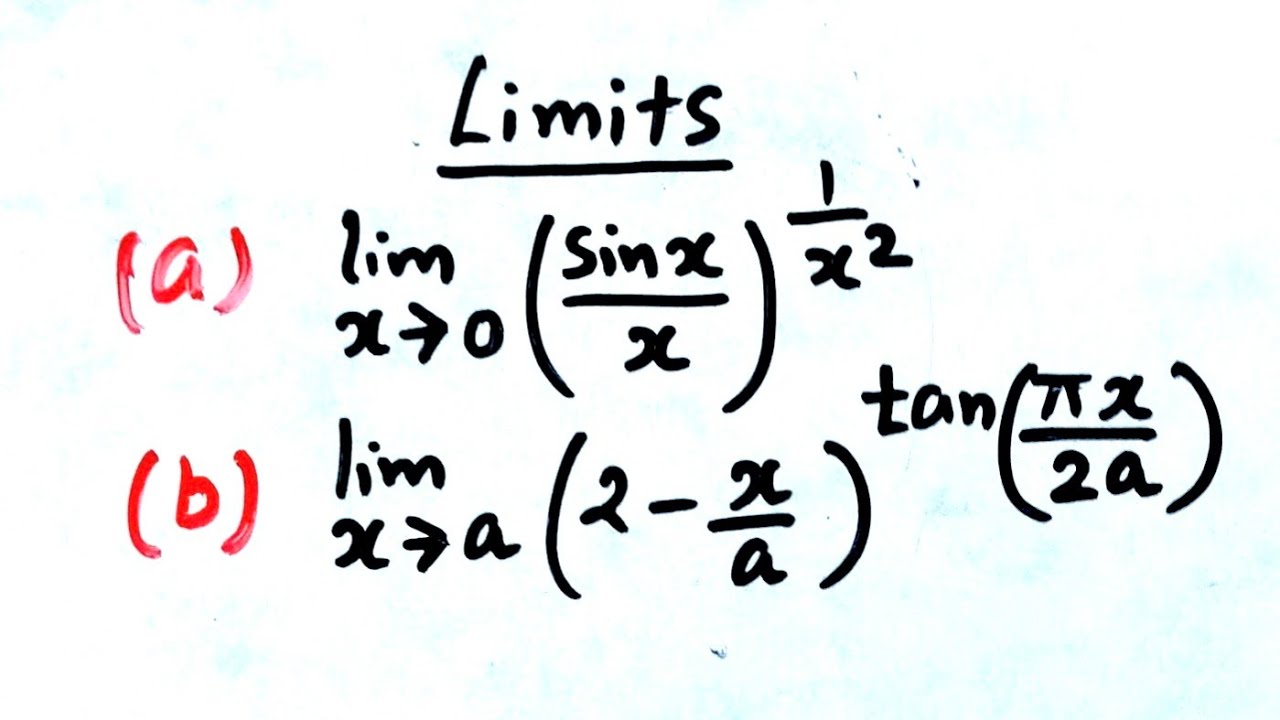 Limits
(a) lim x→0 (sin x / x)^(1/x²)
(b) lim x→a (2 - x/a)^tan(πx/2a)